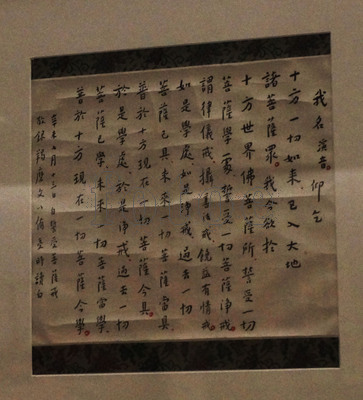 我名演音仰乞
十方一切如来已入大地
諸菩薩眾我今欲於
十方世界佛菩薩所誓受一切
菩薩學處誓受一切菩薩淨戒
謂律儀戒攝善法戒饒益有情戒
如是學處如是淨戒過去一切
菩薩已具未來一切菩薩當具
普於十方現在一切菩薩今具
於是學處於是淨戒過去一切
菩薩已學未來一切菩薩當學
普於十方現在一切菩薩今學
辛七月十三日自誓受菩薩戒
敬錄諸文以備是時讀白